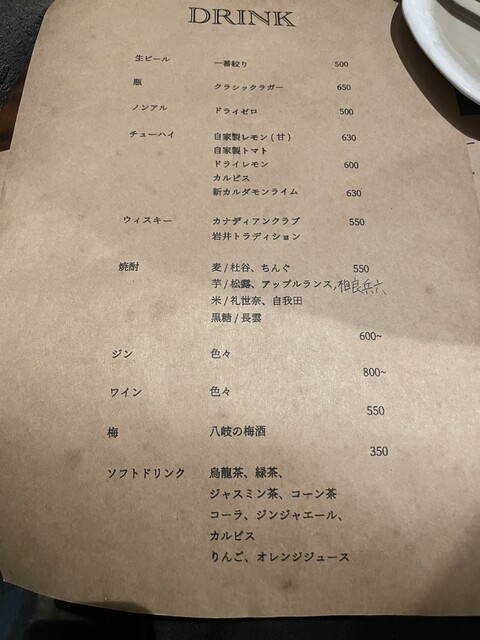 DRINK
生ビール 一番絞り 500
瓶 クラシックラガー 650
ノンアル ドライゼロ 500
チューハイ 自家製レモン(甘) 630
自家製トマト
ドライレモン 600
カルピス
新カルダモンライム 630
ウィスキー カナディアンクラブ 550
岩井トラディション
焼酎 麦/杜谷、ちんぐ 550
芋/松露、アップルランス,相良兵六
米/礼世奈、自我田
黒糖/長雲
600~
ジン 色々
800~
ワイン 色々
550
梅 八岐の梅酒
350
ソフトドリンク 烏龍茶、緑茶、
ジャスミン茶、コーン茶
コーラ、ジンジャエール、
カルピス
りんご、オレンジジュース